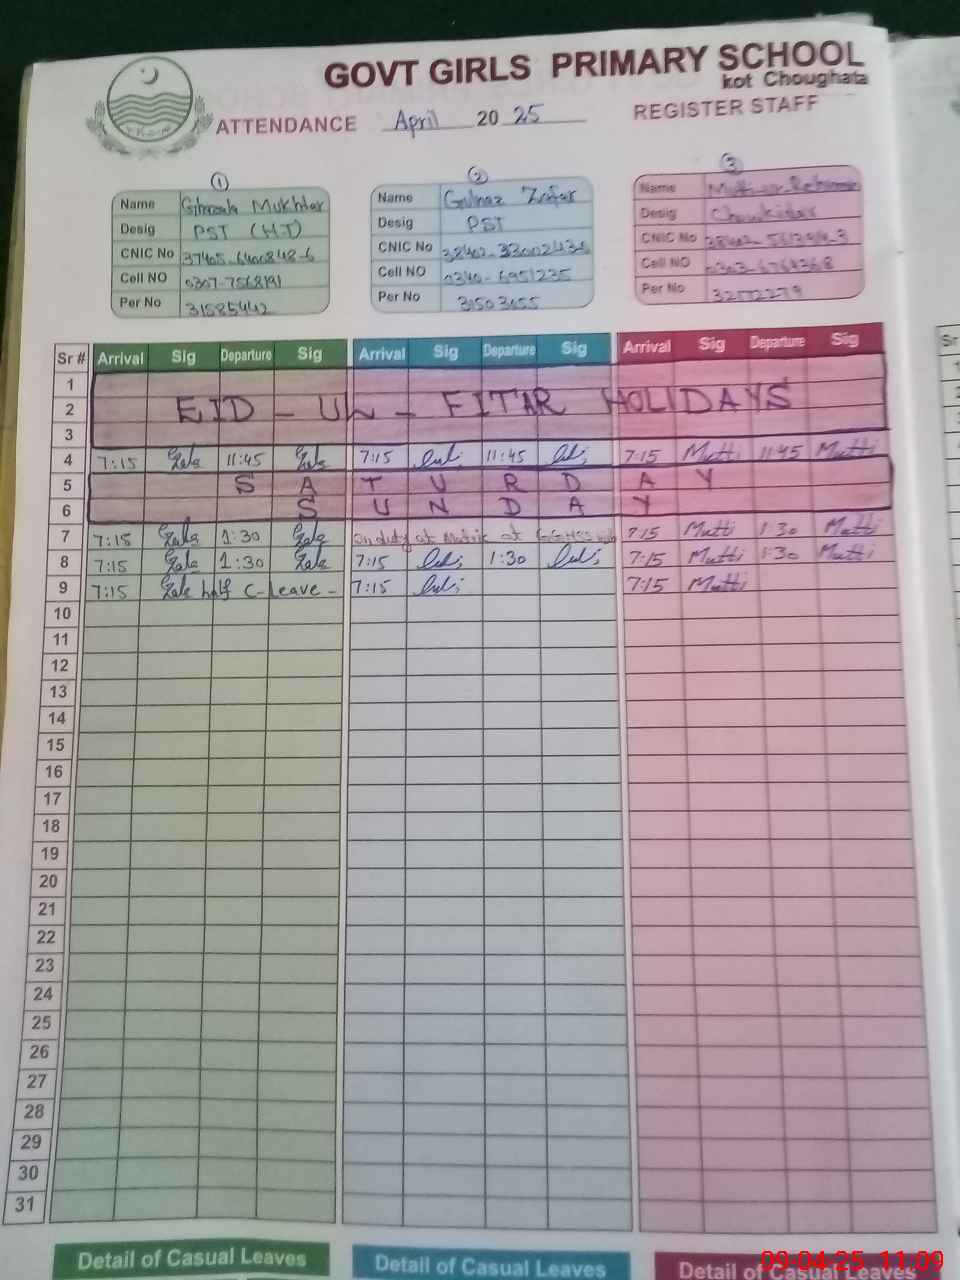 GOVT GIRLS PRIMARY SCHOOL
kot Choughata
ATTENDANCE April 2025 REGISTER STAFF
① ② ③
Name Ghazala Mukhtar Name Gulnaz Zafar Name
Desig PST (H.T) Desig PST Desig Choukidar
CNIC No 37405-6400848-6 CNIC No CNIC No
Cell NO 0307-7568191 Cell NO 0340-6951235 Cell NO 0303-6764368
Per No 31585442 Per No 31503655 Per No
Sr # Arrival Sig Departure Sig Arrival Sig Departure Sig Arrival Sig Departure Sig
1
2 EID - UL - FITAR HOLIDAYS
3
4 7:15 11:45 7:15 11:45 7:15 Mutti 11:45 Mutti
5 SATURDAY
6 SUNDAY
7 7:15 1:30 on duty at Matric at 7:15 Mutti 1:30 Mutti
8 7:15 1:30 7:15 1:30 7:15 Mutti 1:30 Mutti
9 7:15 half C-Leave - 7:15 7:15 Mutti
10
11
12
13
14
15
16
17
18
19
20
21
22
23
24
25
26
27
28
29
30
31
Detail of Casual Leaves Detail of Casual Leaves Detail of Casual Leaves
09-04-25 11:09